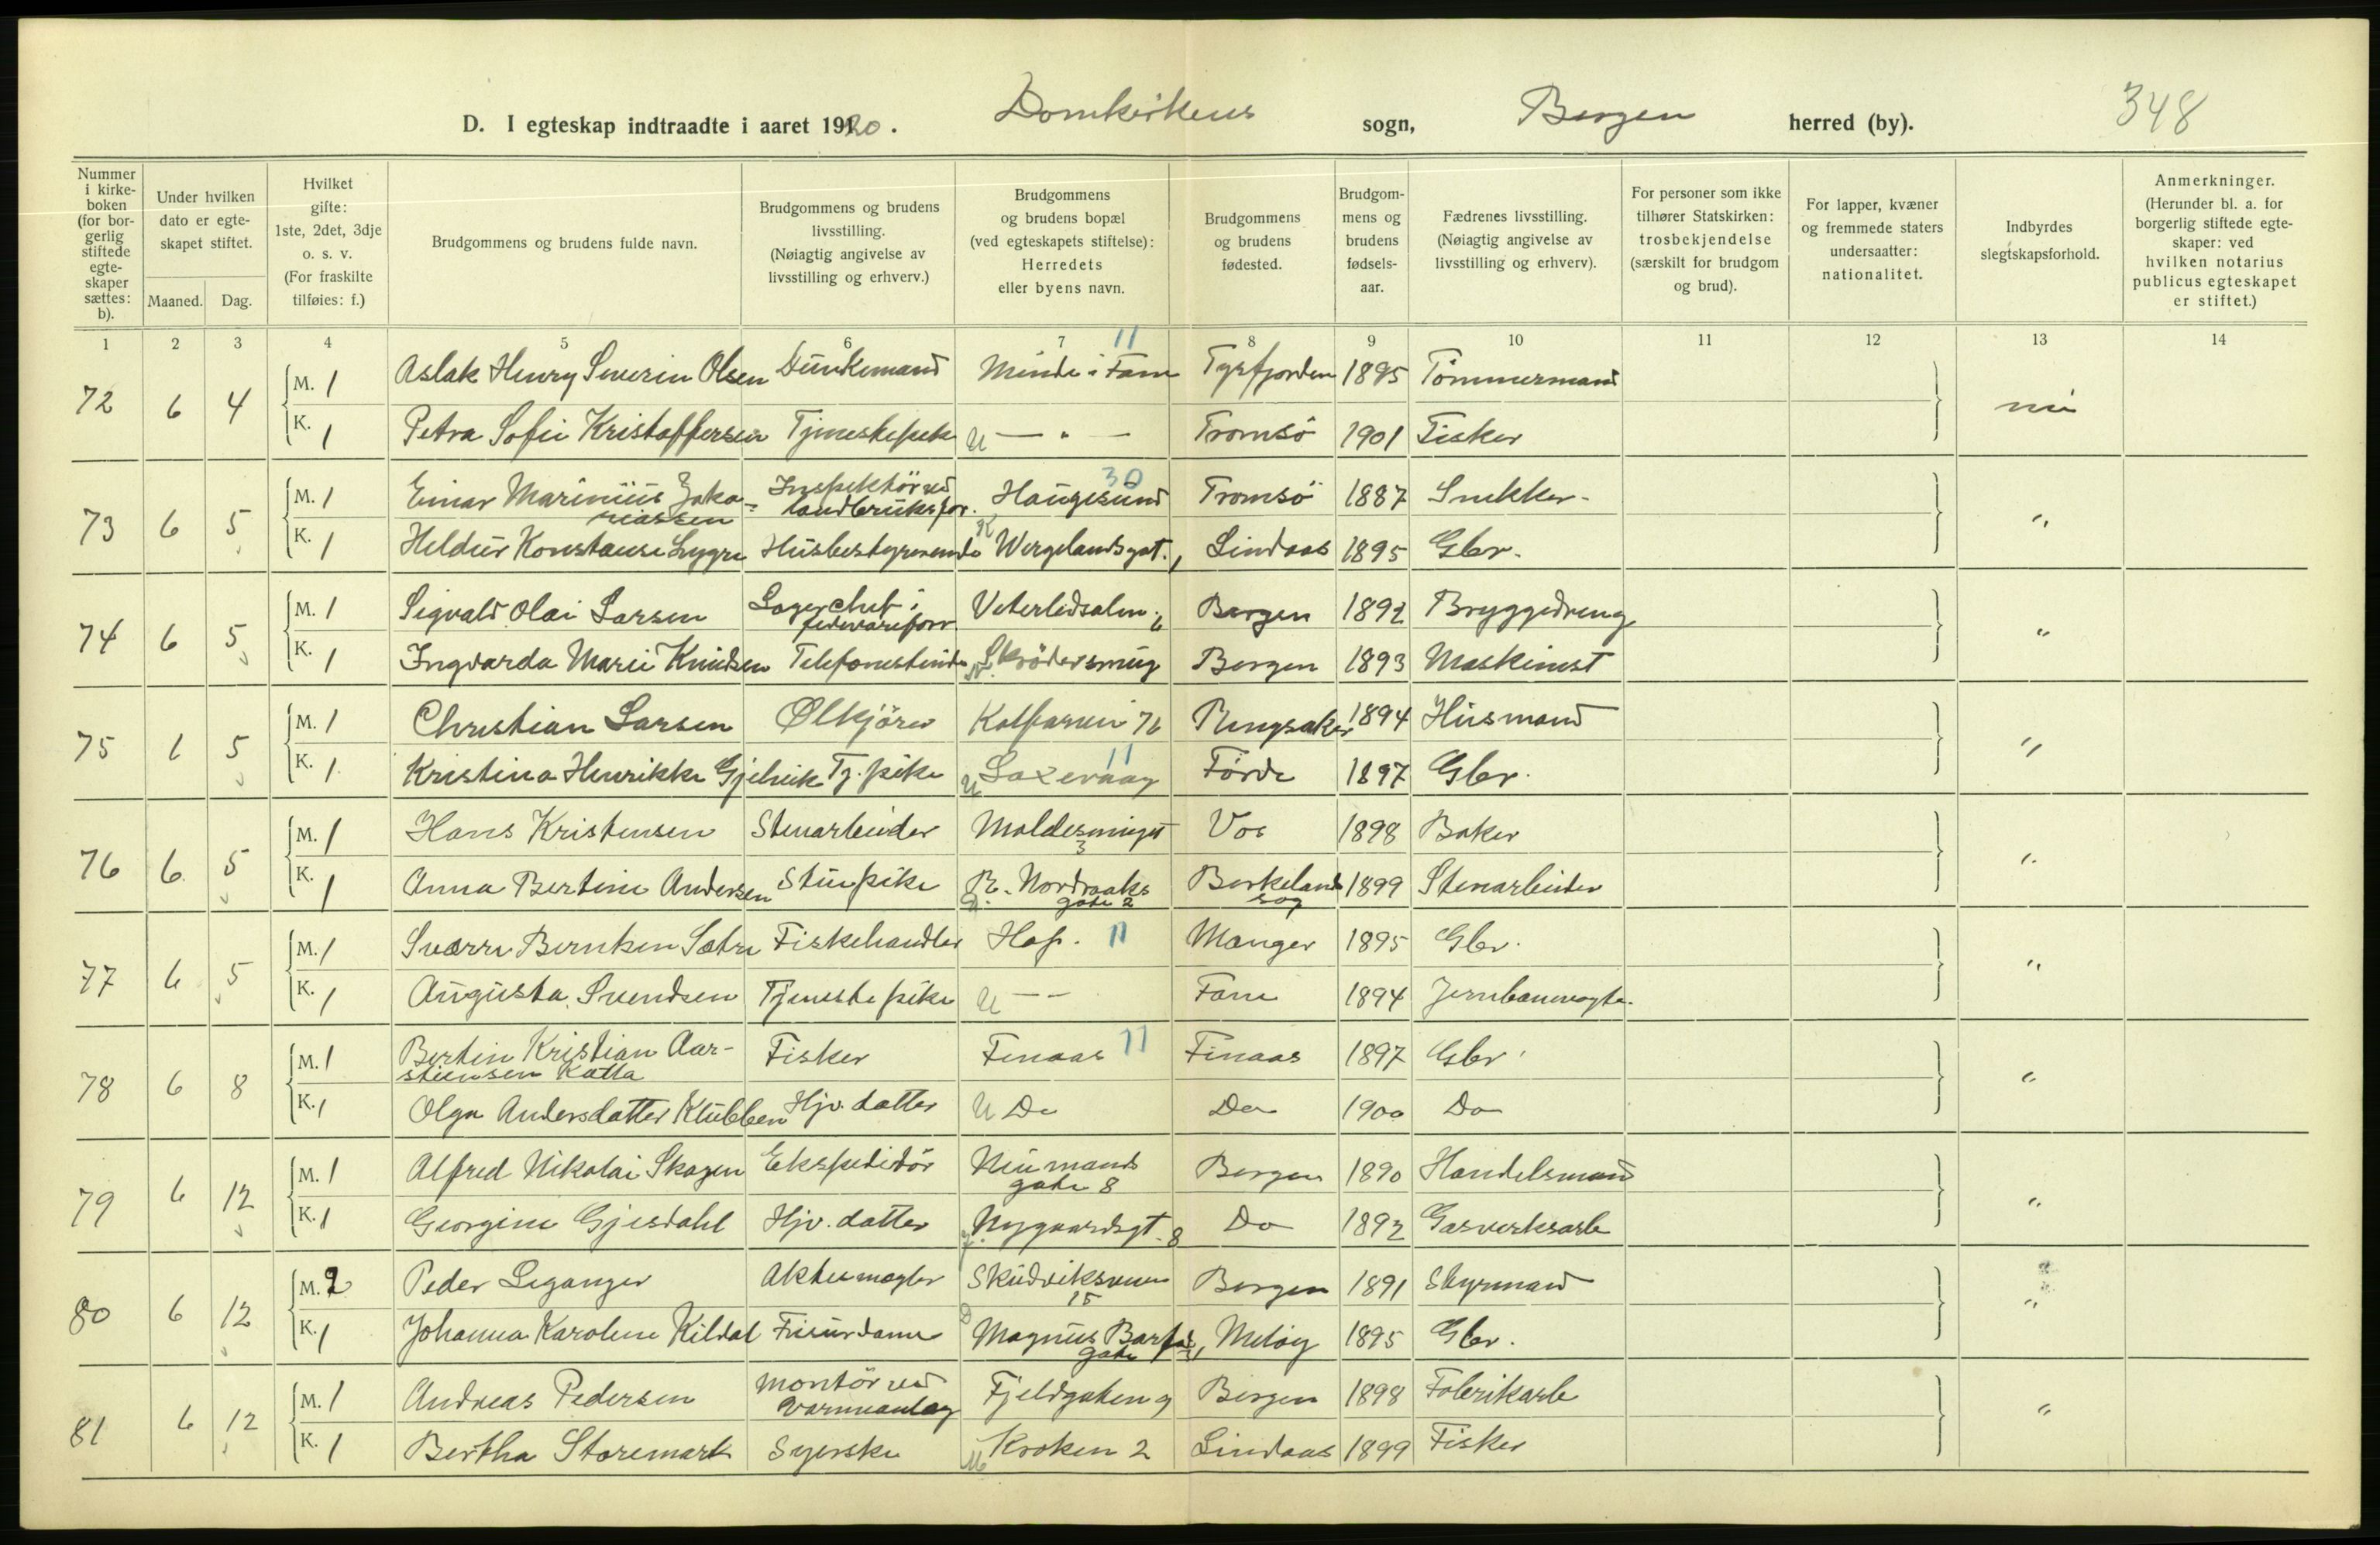 348
D. I egteskap indtraadte i aaret 1920. Domkirkens sogn, Bergen herred (by).
Nummer i kirkeboken (for borgerlig stiftede egteskaper sættes: b).
Under hvilken dato er egteskapet stiftet.
Maaned. Dag.
Hvilket gifte: 1ste, 2det, 3dje o. s. v. (For fraskilte tilføies: f.)
Brudgommens og brudens fulde navn.
Brudgommens og brudens livsstilling. (Nøiagtig angivelse av livsstilling og erhverv.)
Brudgommens og brudens bopæl (ved egteskapets stiftelse): Herredets eller byens navn.
Brudgommens og brudens fødested.
Brudgommens og brudens fødselsaar.
Fædrenes livsstilling. (Nøiagtig angivelse av livsstilling og erhverv).
For personer som ikke tilhører Statskirken: trosbekjendelse (særskilt for brudgom og brud).
For lapper, kvæner og fremmede staters undersaatter: nationalitet.
Indbyrdes slegtskapsforhold.
Anmerkninger. (Herunder bl. a. for borgerlig stiftede egteskaper: ved hvilken notarius publicus egteskapet er stiftet.)
1 2 3 4 5 6 7 8 9 10 11 12 13 14
72 6 4 M. 1 Aslak Henry Severin Olsen Dunkemand Minde i Fane 11 Tysfjorden 1895 Tömmermand nei
K. 1 Petra Sofie Kristoffersen Tjenestepike U — " — Tromsö 1901 Fisker
73 6 5 M. 1 Einar Marinius Zakariassen Inspektör ved landbruksfor. Haugesund 30 Tromsö 1887 Snekker "
K. 1 Heldur Konstanse Lygre Husbestyrerinde Wergelandsgt. Lindaas 1895 Gbr.
74 6 5 M. 1 Sigvald Olai Larsen Lagerchef i fedevareforr. Veterlidsalm. 6 Bergen 1892 Bryggedreng "
K. 1 Ingvarda Marie Knudsen Telefonistinde Skrödersmug Bergen 1893 Maskinist
75 6 5 M. 1 Christian Larsen Ölkjörer Kalfarvei 76 Ringsaker 1894 Husmand "
K. 1 Kristina Henrikke Gjelvik Tj. pike U Laxevaag 11 Förde 1897 Gbr.
76 6 5 M. 1 Hans Kristensen Stenarbeider Moldesmuget 3 Vos 1898 Baker "
K. 1 Anna Bertine Andersen Stuepike R. Nordraaks gate 2 Birkeland sog 1899 Stenarbeider
77 6 5 M. 1 Sverre Berntsen Sætre Fiskehandler Hop. 11 Manger 1895 Gbr. "
K. 1 Augusta Svendsen Tjenestepike U — — Fane 1894 Jernbanevogter
78 6 8 M. 1 Bertin Kristian Aarstiensen Katla Fisker Finaas 11 Finaas 1897 Gbr. "
K. 1 Olga Andersdatter Klubben Hjv. datter U Do Do 1900 Do
79 6 12 M. 1 Alfred Nikolai Skagen Ekspeditör Neumands gate 8 Bergen 1890 Handelsmand "
K. 1 Georgine Gjesdahl Hjv. datter Nygaardsgt. 8 Do 1892 Gasverksarb
80 6 12 M. 2 Peder Leganger Aktiemægler Skudviksveien 15 Bergen 1891 Styrmand "
K. 1 Johanna Karoline Kildal Frisørdame Magnus Barfots gate Melöy 1895 Gbr.
81 6 12 M. 1 Andreas Pedersen Montör ved varmeanlæg Fjeldgaten 9 Bergen 1898 Fabrikarb "
K. 1 Bertha Storemark Syerske Kroken 2 Lindaas 1899 Fisker